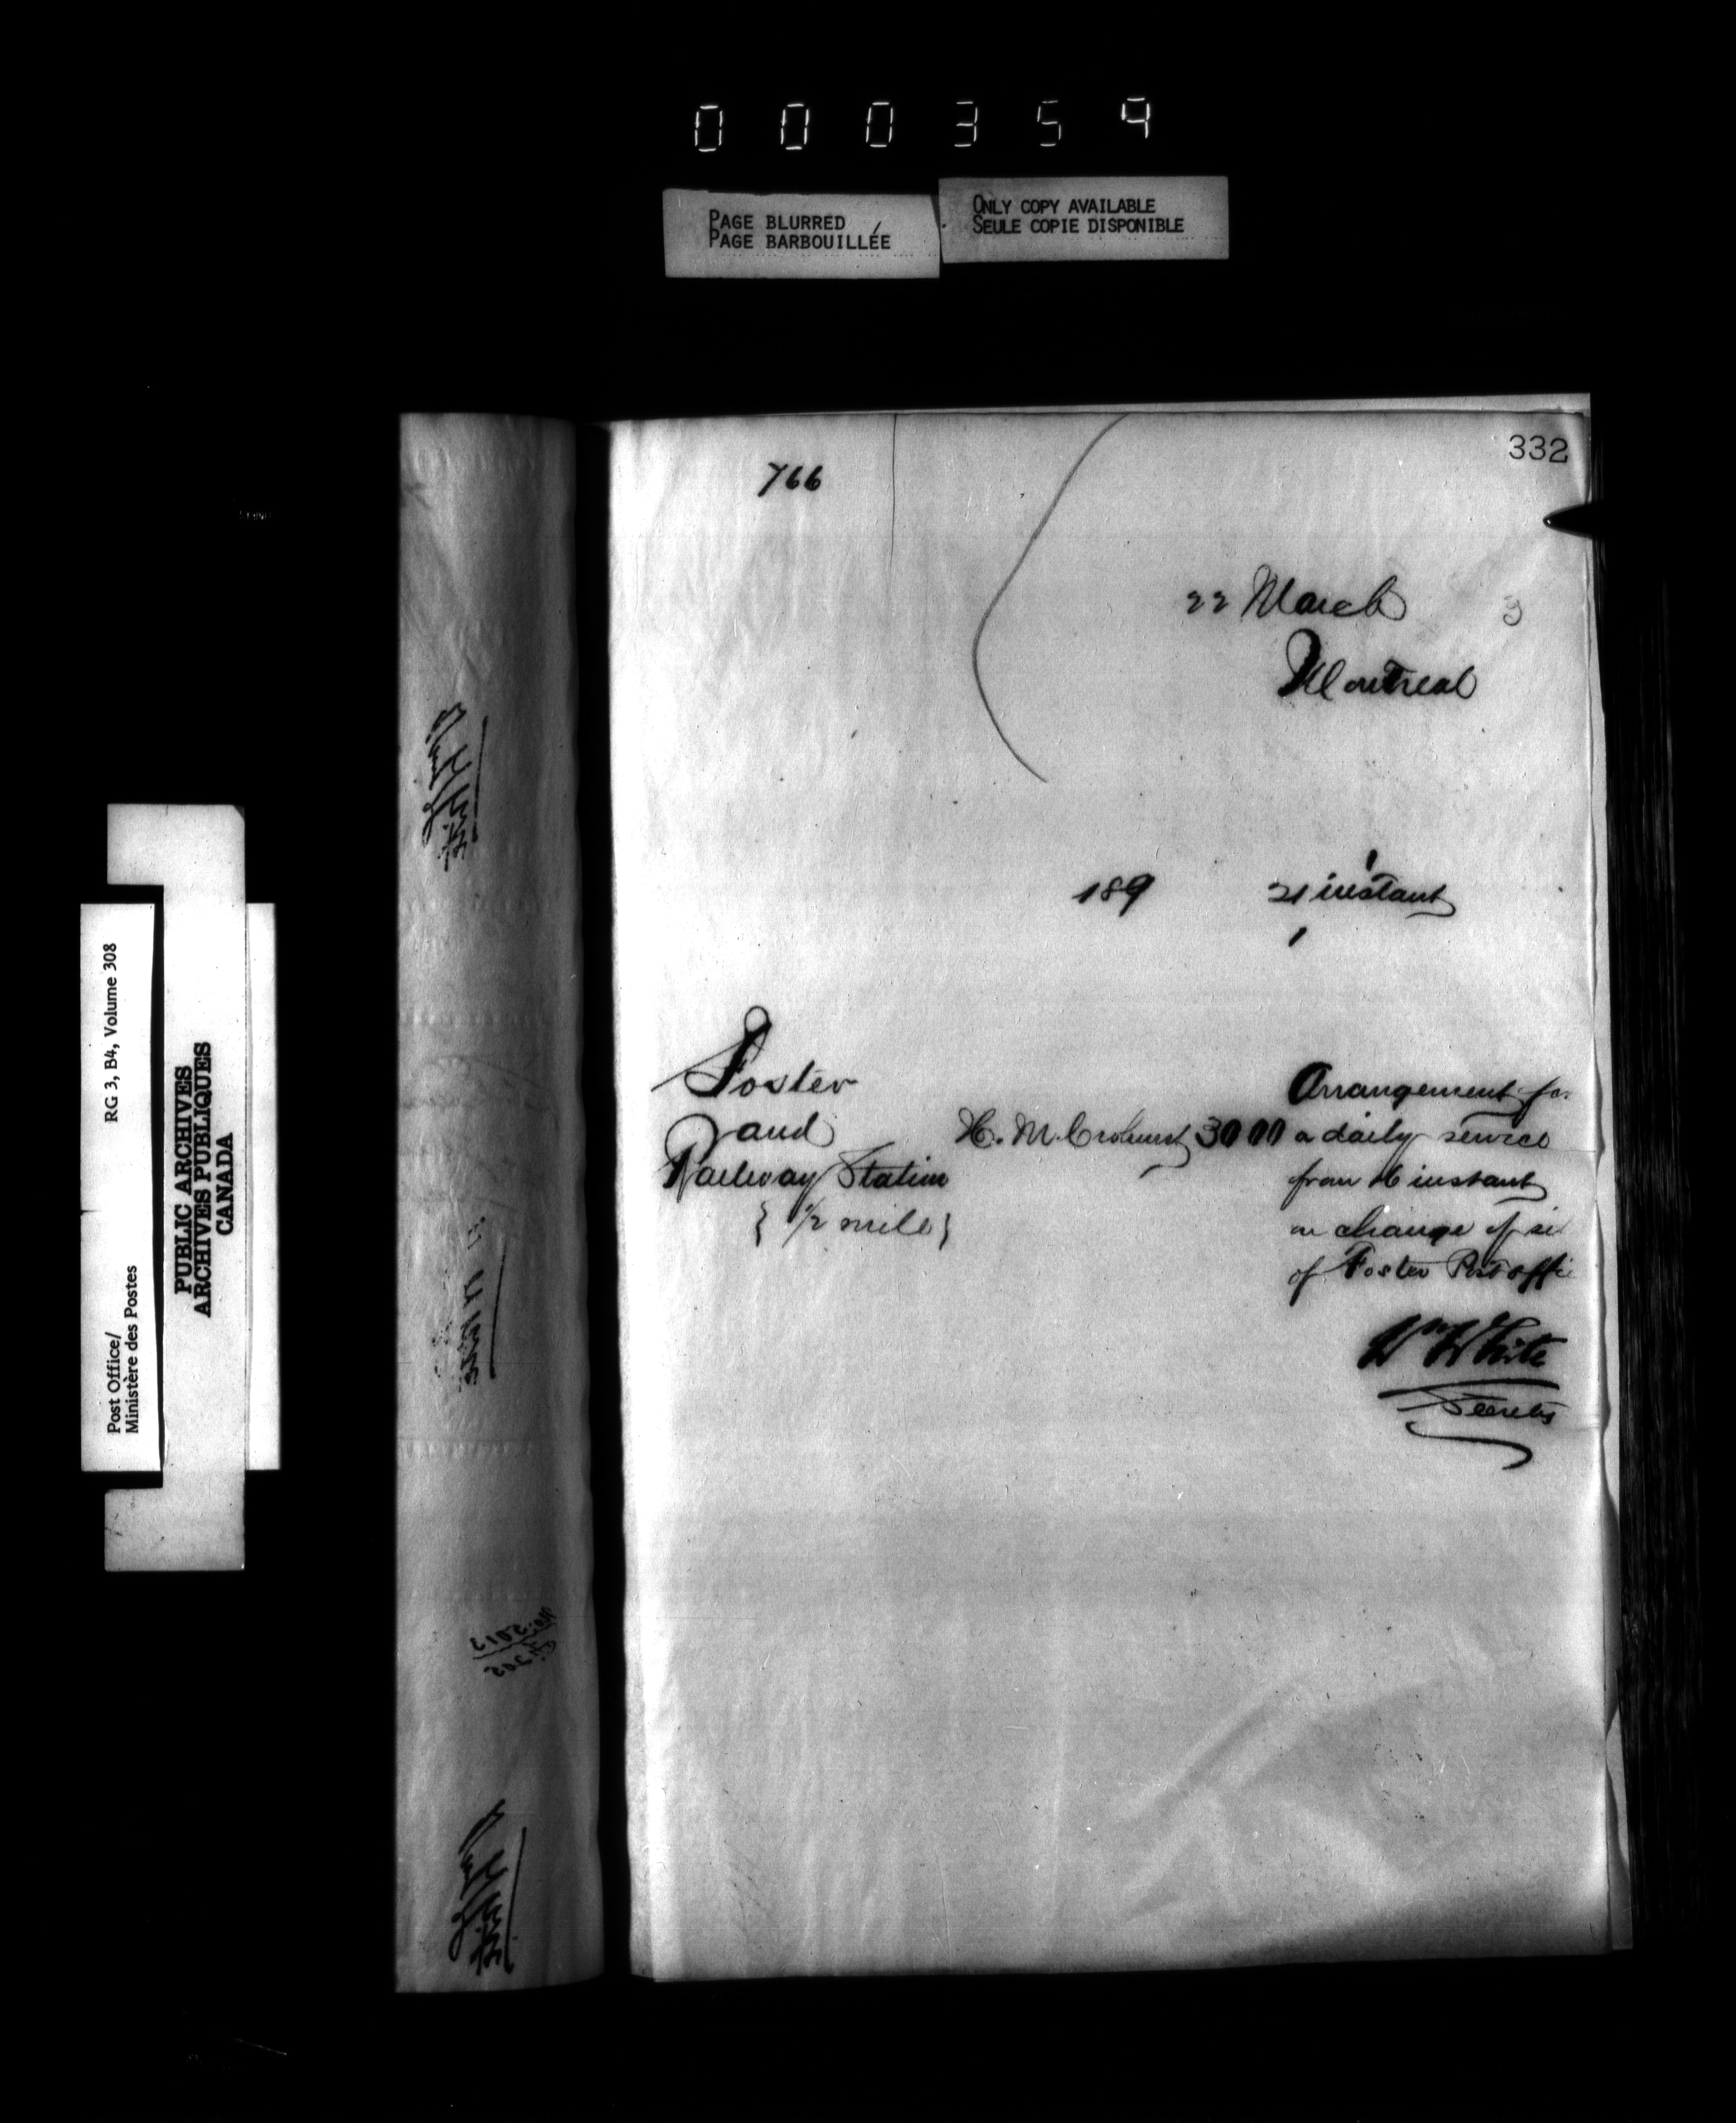 000359
PAGE BLURRED
PAGE BARBOUILLÉE
ONLY COPY AVAILABLE
SEULE COPIE DISPONIBLE
332
766
22 March 3
Montreal
189 21 instant
Foster
and
Railway Station
{ 1/2 mile }
H. M. 30 00
Arrangement for
a daily service
from 16 instant
on change of
of Foster Post offi
Wm White
Secrety
Post Office/
Ministère des Postes
RG 3, B4, Volume 308
PUBLIC ARCHIVES
ARCHIVES PUBLIQUES
CANADA